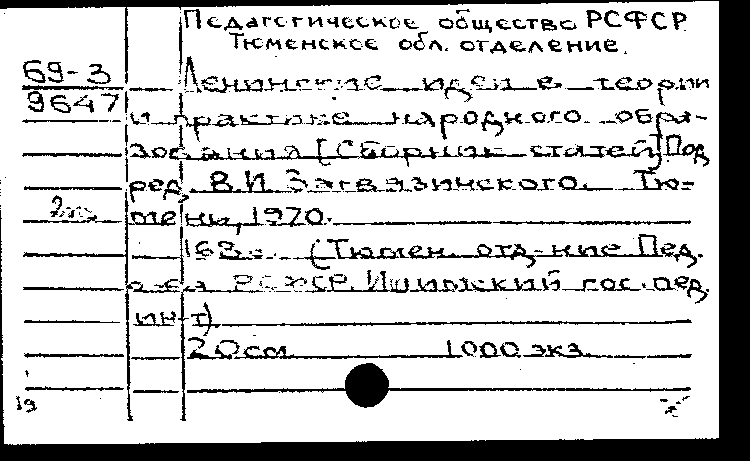 Педагогическое общество РСФСР
Тюменское обл. отделение.
69-3
9647
Ленинские идеи в теории
и практике народного обра-
зования [Сборник статей] Под
ред. В.И. Загвязинского. Тю-
мень, 1970.
168с. (Тюмен. отд-ние Пед.
о-ва РСФСР. Ишимский гос. пед.
ин-т).
20см 1000 экз.
19